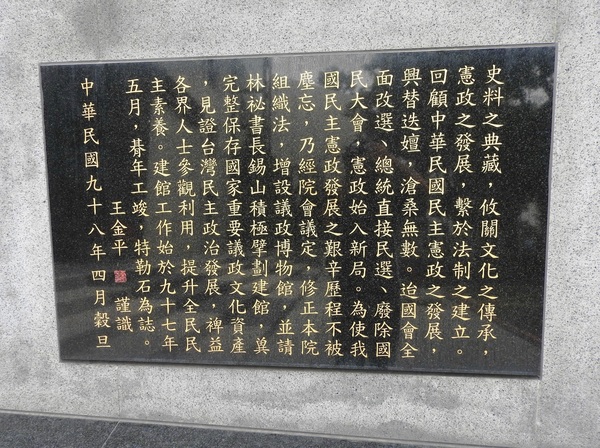 史料之典藏，攸關文化之傳承，
憲政之發展，繫於法制之建立。
回顧中華民國民主憲政之發展，
興替迭嬗，滄桑無數。迨國會全
面改選、總統直接民選、廢除國
民大會，憲政始入新局。為使我
國民主憲政發展之艱辛歷程不被
塵忘，乃經院會議定，修正本院
組織法，增設議政博物館　並請
林祕書長錫山積極擘劃建館，冀
完整保存國家重要議政文化資產
，見證台灣民主政治發展，裨益
各界人士參觀利用，提升全民民
主素養。建館工作始於九十七年
五月，朞年工竣，特勒石為誌。
王金平　謹識
中華民國九十八年四月穀旦